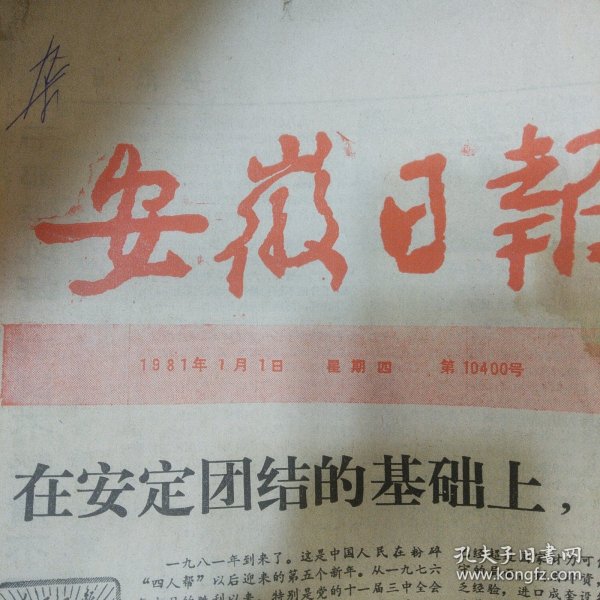 安徽日報
1981年1月1日 星期四 第10400号
在安定团结的基础上，
一九八一年到来了。这是中国人民在粉碎
“四人帮”以后迎来的第五个新年。从一九七六
特别是党的十一届三中全会
乏经验，进口成套设
孔夫子旧书网
www.kongfz.com